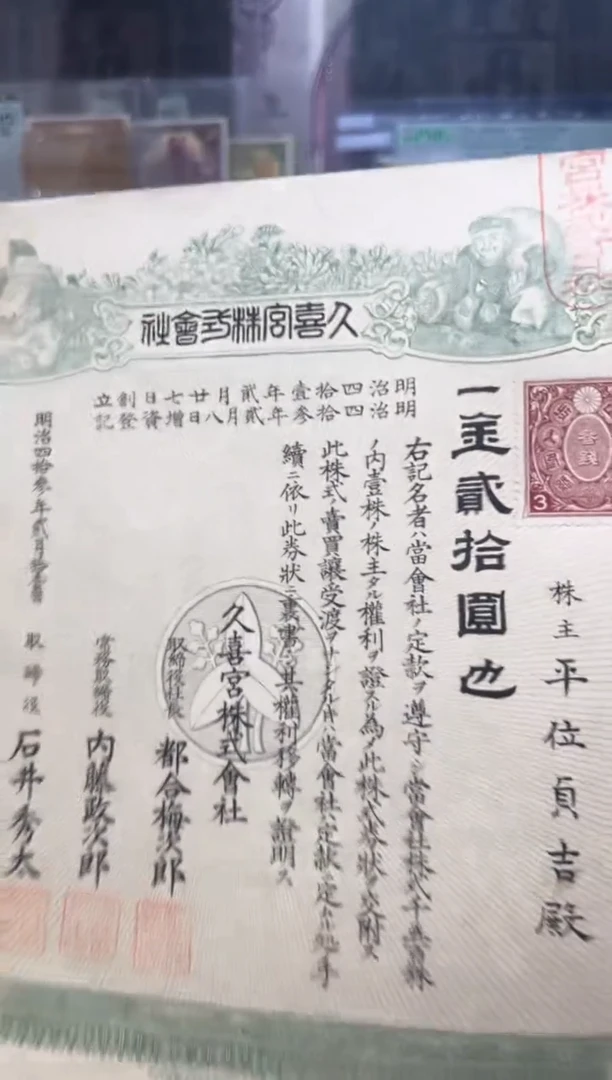 久喜宮株式會社
明治四拾壹年貳月廿七日創立
明治四拾參年貳月八日增資登記
一金貳拾圓也
株主 平位貞吉殿
右記名者ハ當會社ノ定款ヲ遵守シ當會社株式千
ノ內壹株ノ株主タル權利ヲ證スル為メ此株式券狀ヲ交附ス
此株式ノ賣買讓受渡ヲ
當會社ハ定款ニ定
手
續ニ依リ此券狀ニ裏書
其權利移轉ヲ證明ス
久喜宮株式會社
取締役社長 都合梅次郎
常務取締役 內藤政次郎
取締役 石井秀太
明治四拾參年貳月
參錢
3